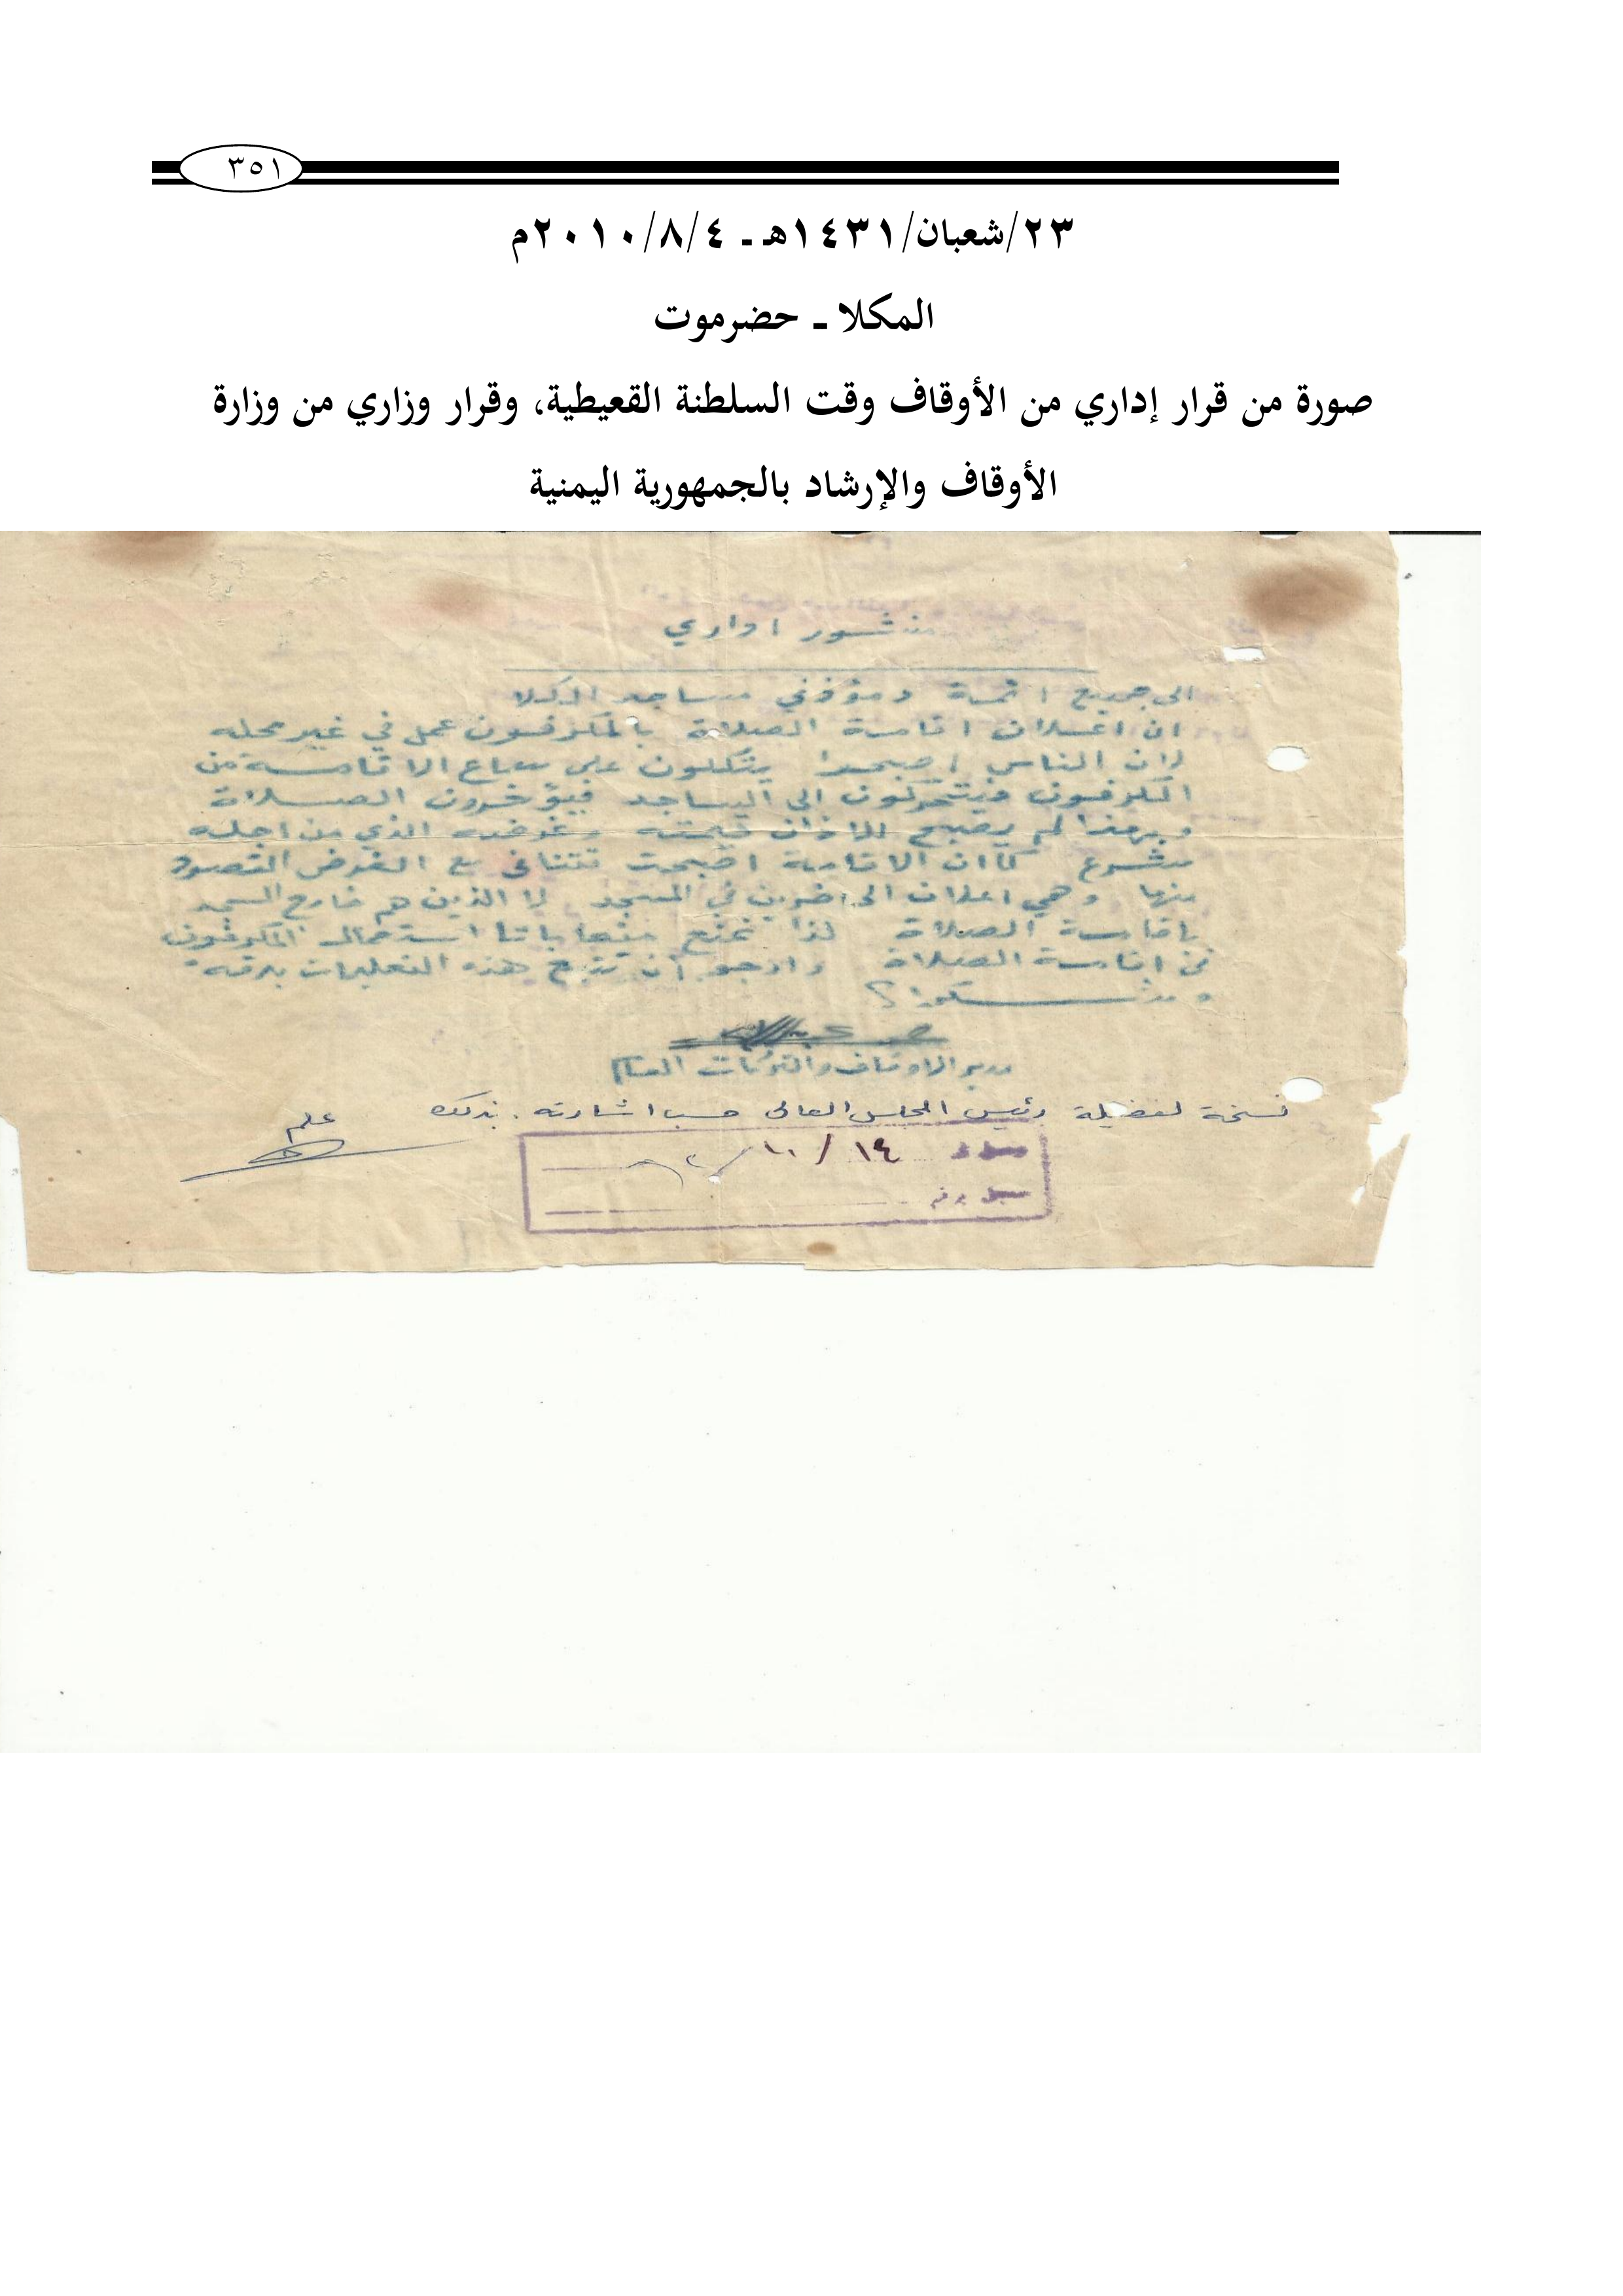 ٣٥١
٢٣/شعبان/١٤٣١هـ ـ ٢٠١٠/٨/٤م
المكلا ـ حضرموت
صورة من قرار إداري من الأوقاف وقت السلطنة القعيطية، وقرار وزاري من وزارة
الأوقاف والإرشاد بالجمهورية اليمنية
منشور اداري
الى جميع ائمة ومؤذني مساجد المكلا
ان اعلان اقامة الصلاة بالمكرفون عمل في غير محله
لان الناس اصبحوا يتكلون على سماع الاقامة من
المكرفون فيتحركون الى المساجد فيؤخرون الصلاة
وبهذا لم يصبح للاذان قيمته وغرضه الذي من اجله
مشروع كما ان الاقامة اصبحت تتنافى مع الغرض المقصود
منها وهي اعلان الحاضرين في المسجد لا الذين هم خارج المسجد
باقامة الصلاة لذا نمنع منعا باتا استعمال المكرفون
في اقامة الصلاة وارجو أن تتبع هذه التعليمات بدقه
ومشكورا
مدير الاوقاف والتركات العام
نسخة لفضيلة رئيس المجلس العالي حسب اشارته بذلك
علم
١٤/١٠/